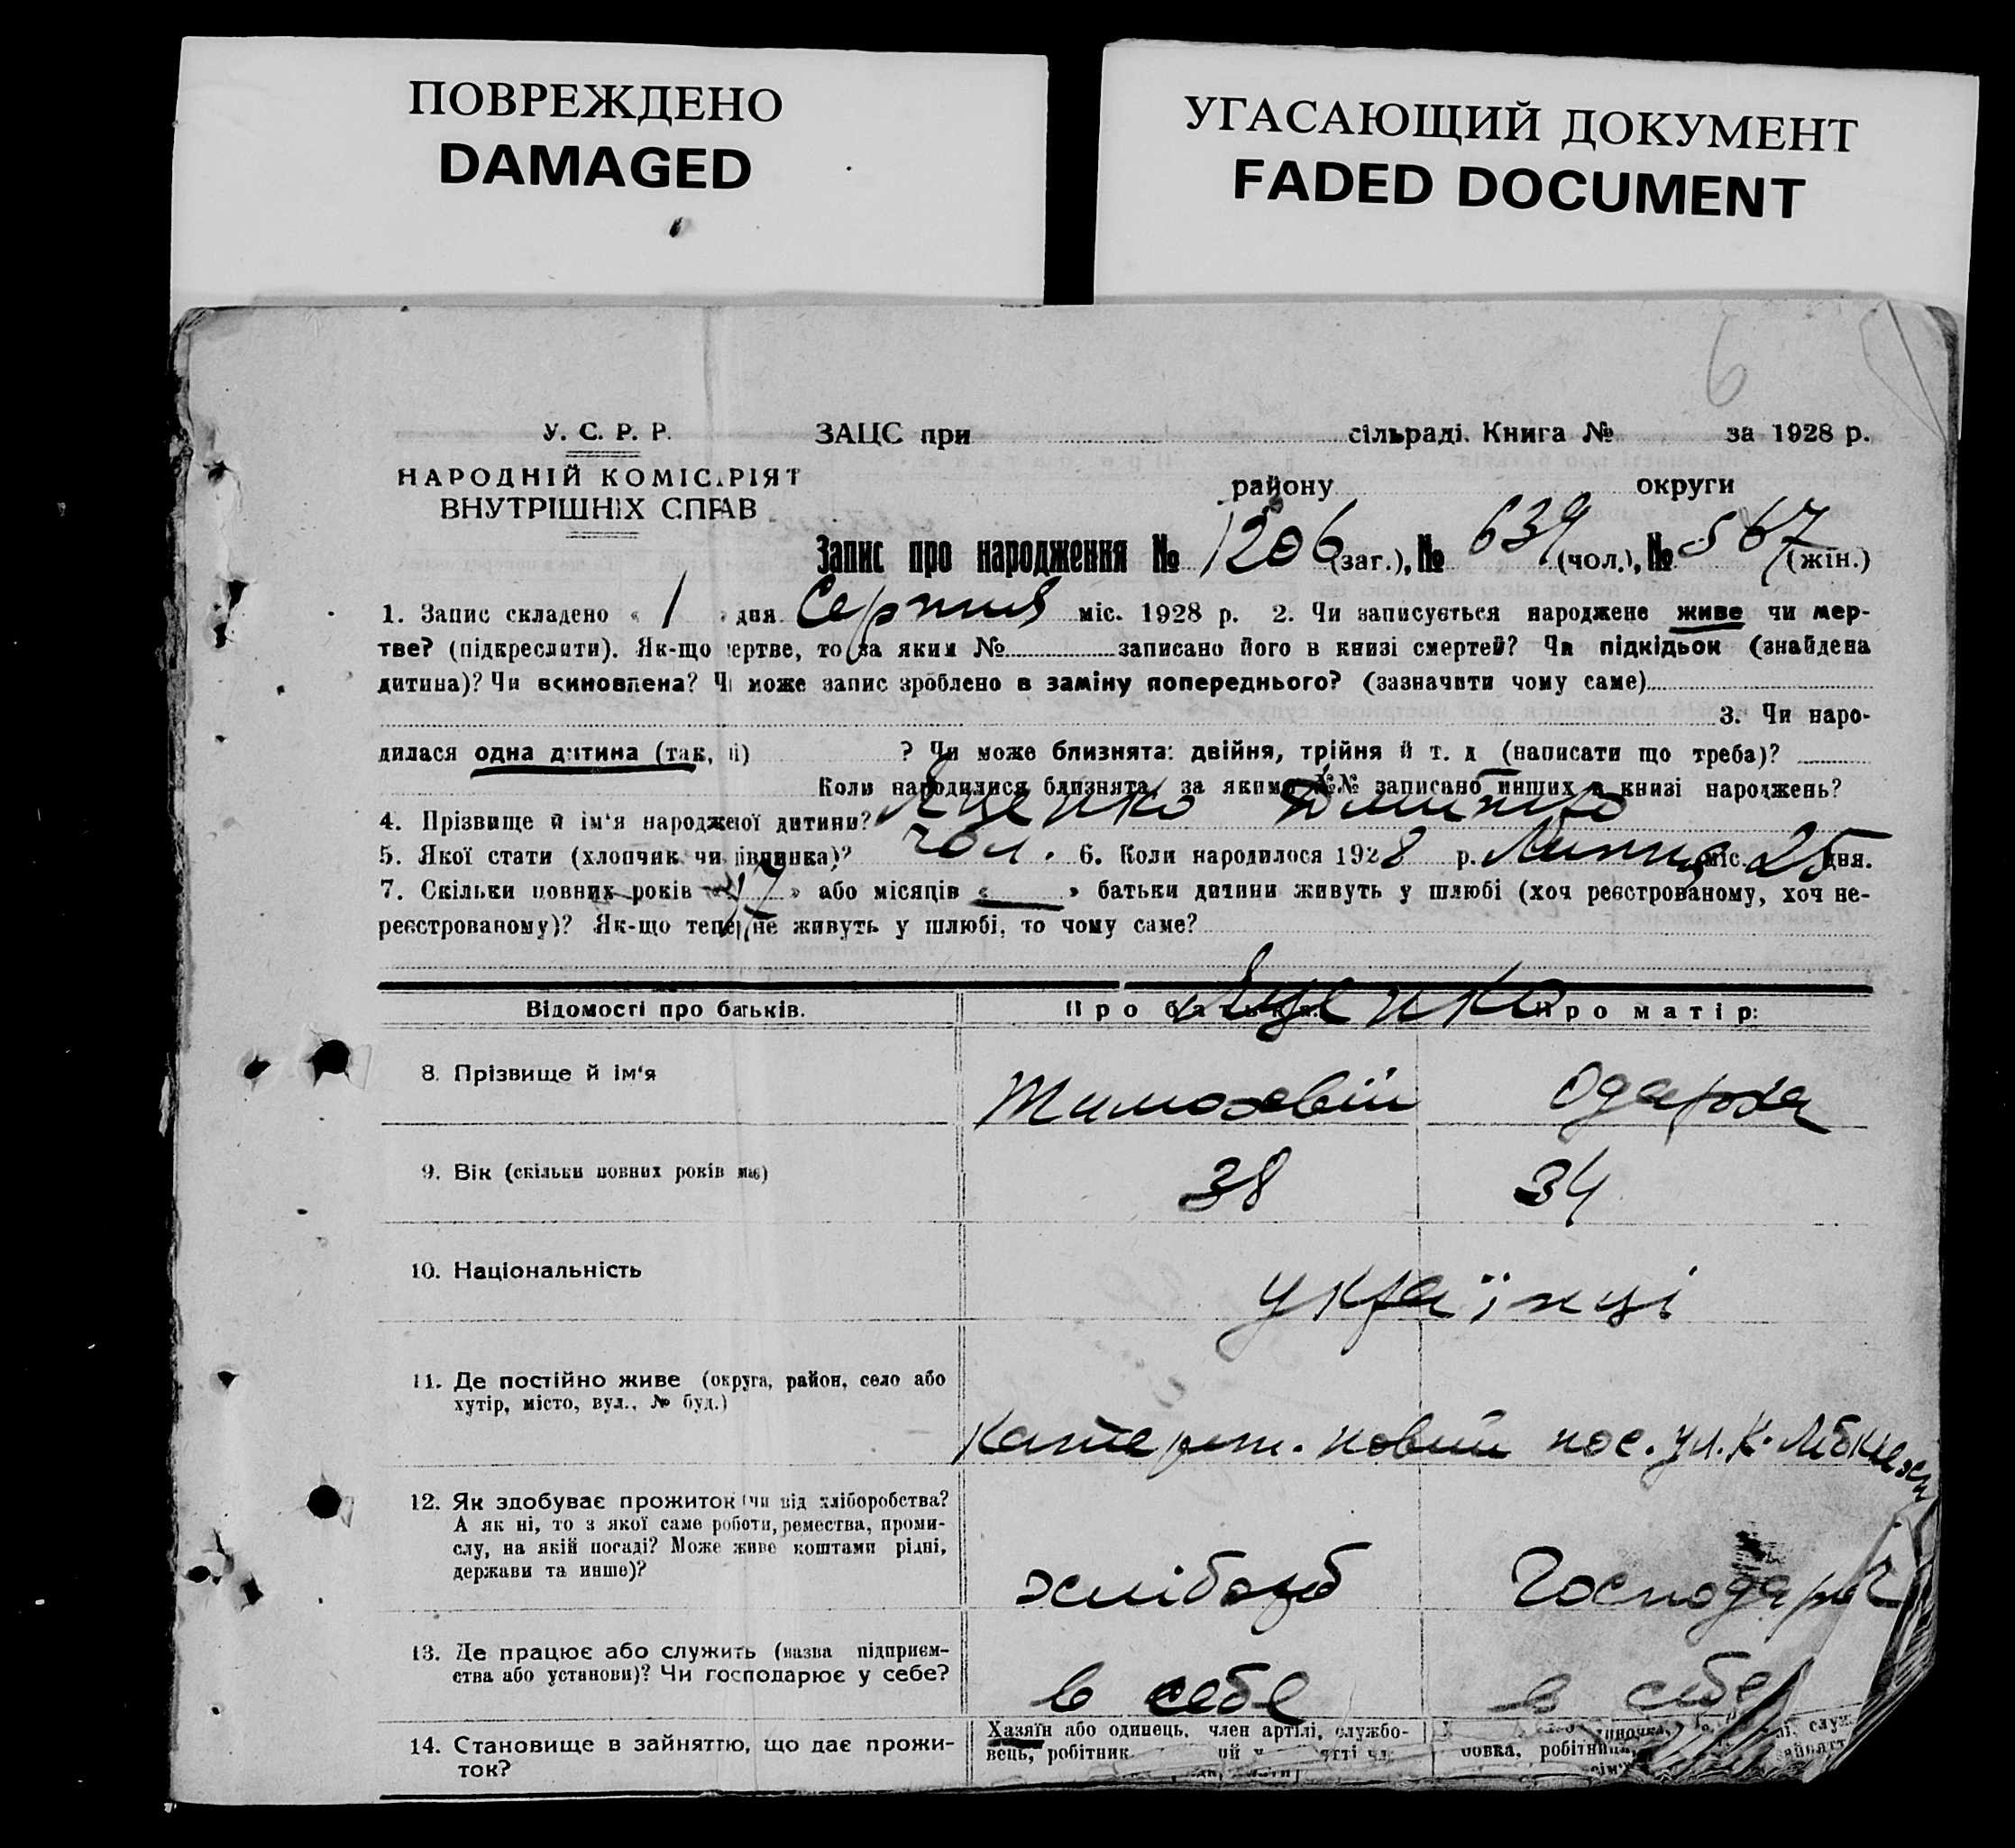 ПОВРЕЖДЕНО
DAMAGED
УГАСАЮЩИЙ ДОКУМЕНТ
FADED DOCUMENT
6
У. С. Р. Р.
НАРОДНІЙ КОМІС.РІЯТ
ВНУТРІШНІХ СПРАВ
ЗАЦС при сільраді. Книга № за 1928 р.
району округи
Запис про народження № 1206 (заг.), № 639 (чол.), № 567 (жін.)
1. Запис складено « 1 » дня Серпня міс. 1928 р. 2. Чи записується народжене живе чи мер-
тве? (підкреслити). Як-що мертве, то за яким № записано його в книзі смертей? Чи підкідьок (знайдена
дитина)? Чи всиновлена? Чи може запис зроблено в заміну попереднього? (зазначити чому саме)
3. Чи наро-
дилася одна дитина (так, ні) ? Чи може близнята: двійня, трійня й т. д. (написати що треба)?
Коли народилися близнята, за якими №№ записано инших в книзі народжень?
4. Прізвище й ім'я народженої дитини? Яценко Дмитро
5. Якої стати (хлопчик чи дівчинка)? чол. 6. Коли народилося 1928 р. Липня міс. 25 дня.
7. Скільки повних років « 17 » або місяців « — » батьки дитини живуть у шлюбі (хоч реєстрованому, хоч не-
реєстрованому)? Як-що тепер не живуть у шлюбі, то чому саме?
Відомості про батьків. Про батька: Про матір:
Яценко
8. Прізвище й ім'я Тимофвій Одарка
9. Вік (скільки повних років має) 38 34
10. Національність українці
11. Де постійно живе (округа, район, село або
хутір, місто, вул., № буд.)
Катерин. новий пос. ул. К. Лібкнехт
12. Як здобуває прожиток (чи від хліборобства?
А як ні, то з якої саме роботи, ремества, проми-
слу, на якій посаді? Може живе коштами рідні,
держави та инше)?
хлібороб Господар
13. Де працює або служить (назва підприєм-
ства або установи)? Чи господарює у себе?
в себе в себе
14. Становище в зайняттю, що дає прожи-
ток?
Хазяїн або одинець, член артілі, службо-
вець, робітник
робітниця,